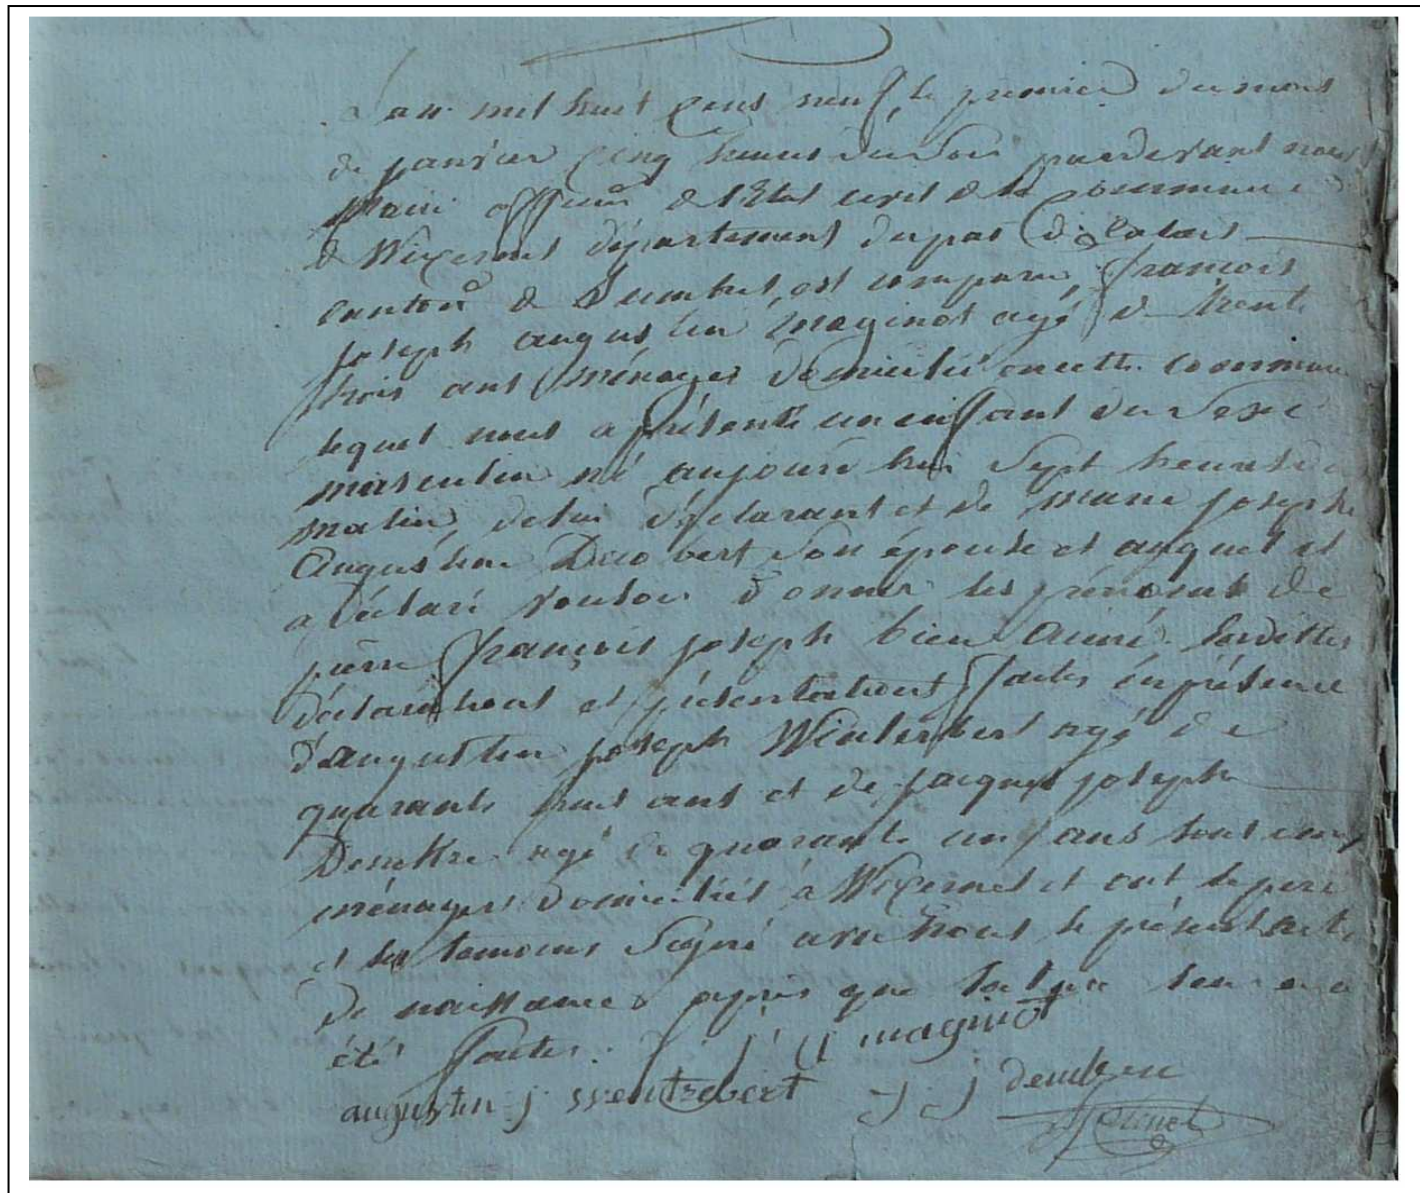 L'an mil huit cens neuf, le premier du mois
de janvier cinq heures du Soir pardevant nous
Maire officier de l'Etat civil de la Commune
de Wizernes département du pas de Calais
canton de Lumbres, est comparu françois
joseph augustin maginot agé de trente
trois ans ménager domicilié en cette commune
lequel nous a présenté un enfant du Sexe
masculin né aujourd'hui Sept heures du
matin, de lui déclarant et de marie josephe
Augustine son épouse et auquel il
a déclaré vouloir donner les prénoms de
pierre françois joseph bien Aimé lesdittes
déclarations et présentations faites en présence
d'augustin joseph Wintrebert agé de
quarante huit ans et de jacques joseph
agé de quarante un ans tous deux
ménagers domiciliés à Wizernes et ont le pere
et les temoins Signé avec nous le présent acte
de naissance après que lecture leur en a
été faite.
j a maginot
augustin j wentrebert j j